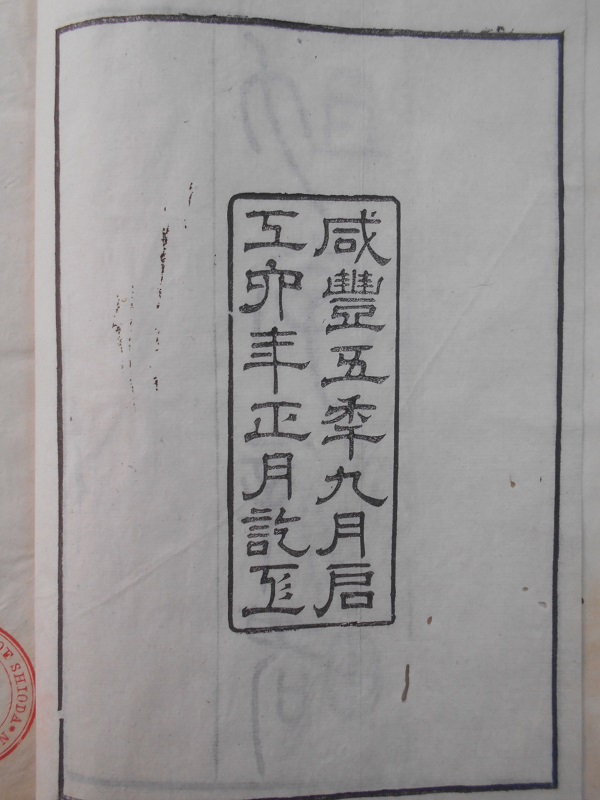 咸豐五秊九月启
工卯年正月訖𢒄
SHIODA